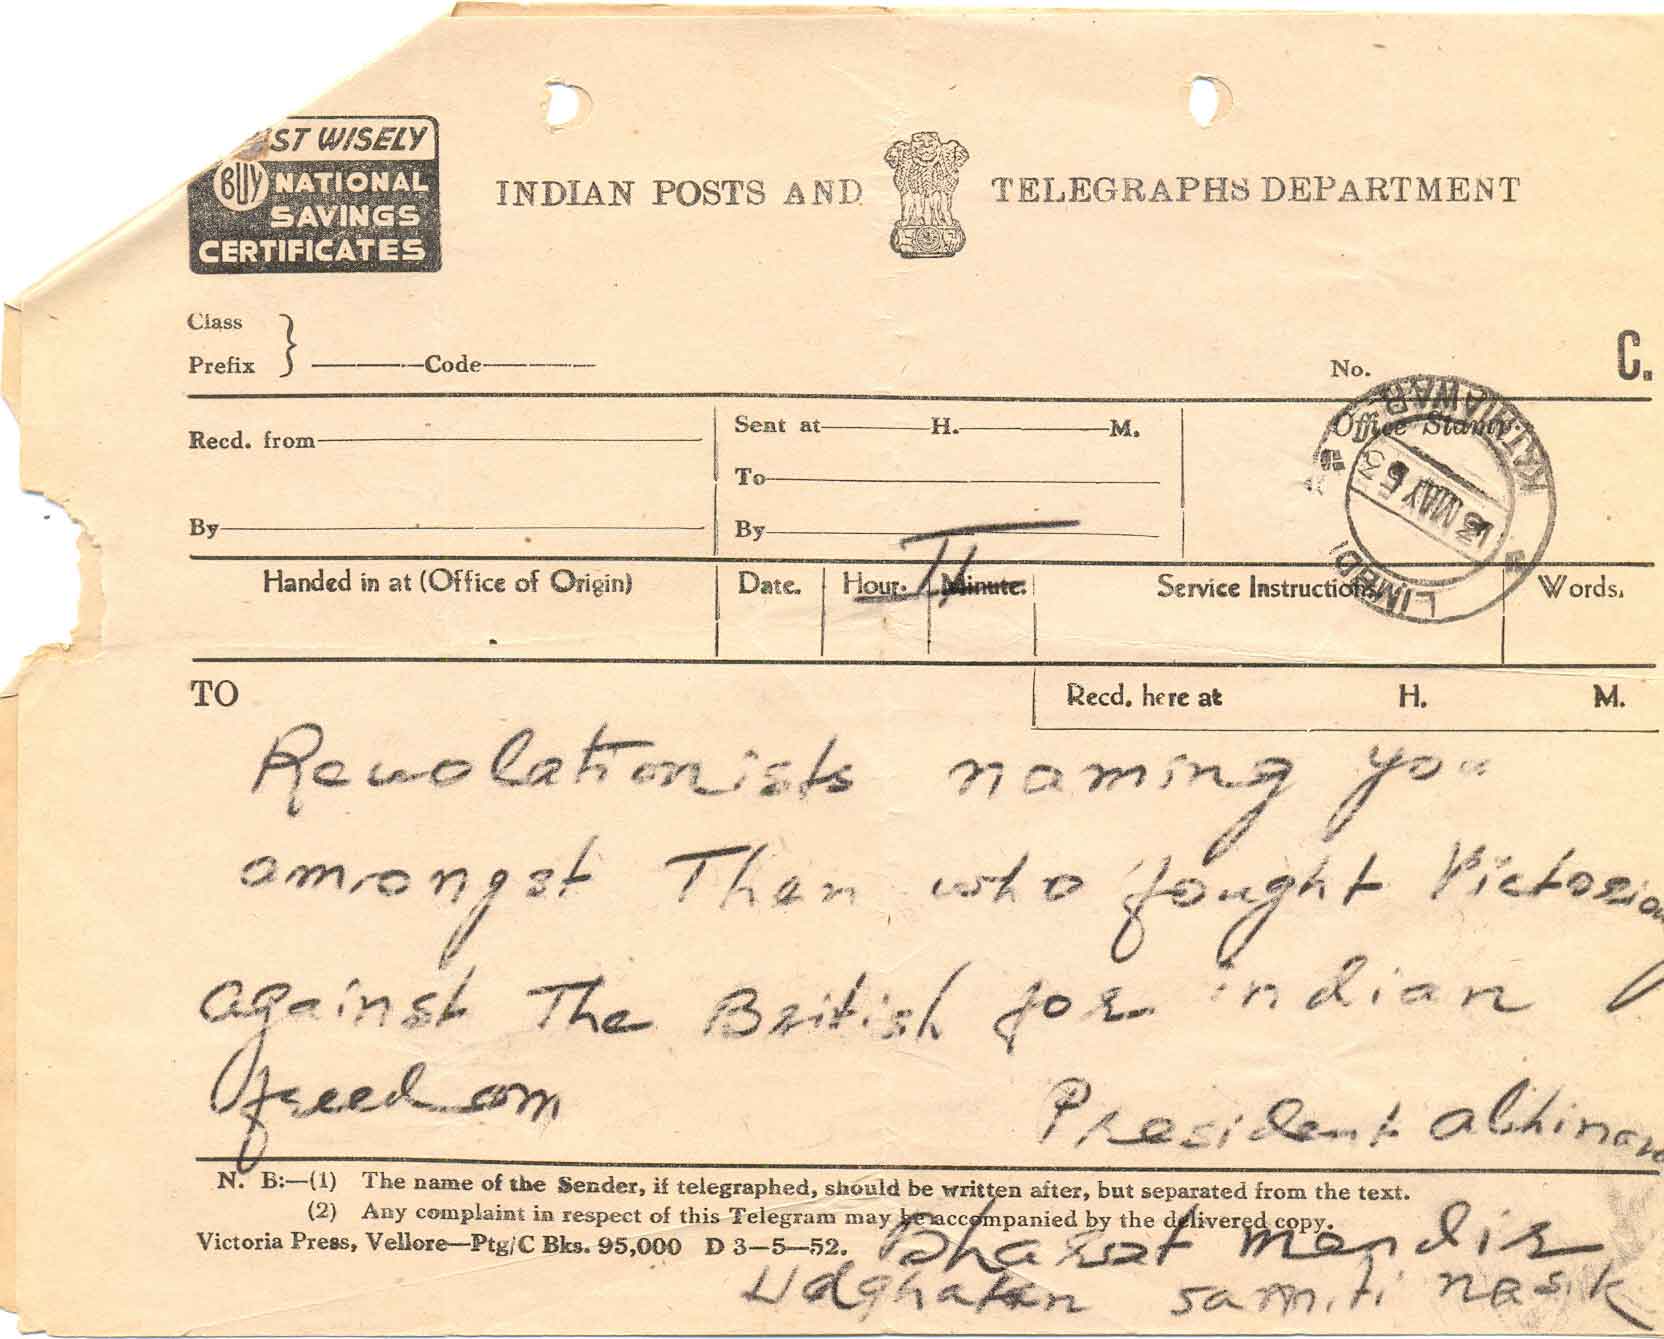 ST WISELY
BUY NATIONAL
SAVINGS
CERTIFICATES
INDIAN POSTS AND TELEGRAPHS DEPARTMENT
Class
Prefix } Code
No.
C.
Recd. from
Sent at H. M.
Office Stamp
To
By
By
KATHIAWAR
13 MAY 53
LIMBDI
II
Handed in at (Office of Origin) Date. Hour. Minute. Service Instructions Words.
TO
Recd. here at H. M.
Revolationists naming you
amongst Then who fought Victorious
against The British for indian
freedom
President abhinav
N. B:—(1) The name of the Sender, if telegraphed, should be written after, but separated from the text.
(2) Any complaint in respect of this Telegram may be accompanied by the delivered copy.
Victoria Press, Vellore—Ptg/C Bks. 95,000 D 3-5-52.
Bharat mandir
Udghatan samiti nasik